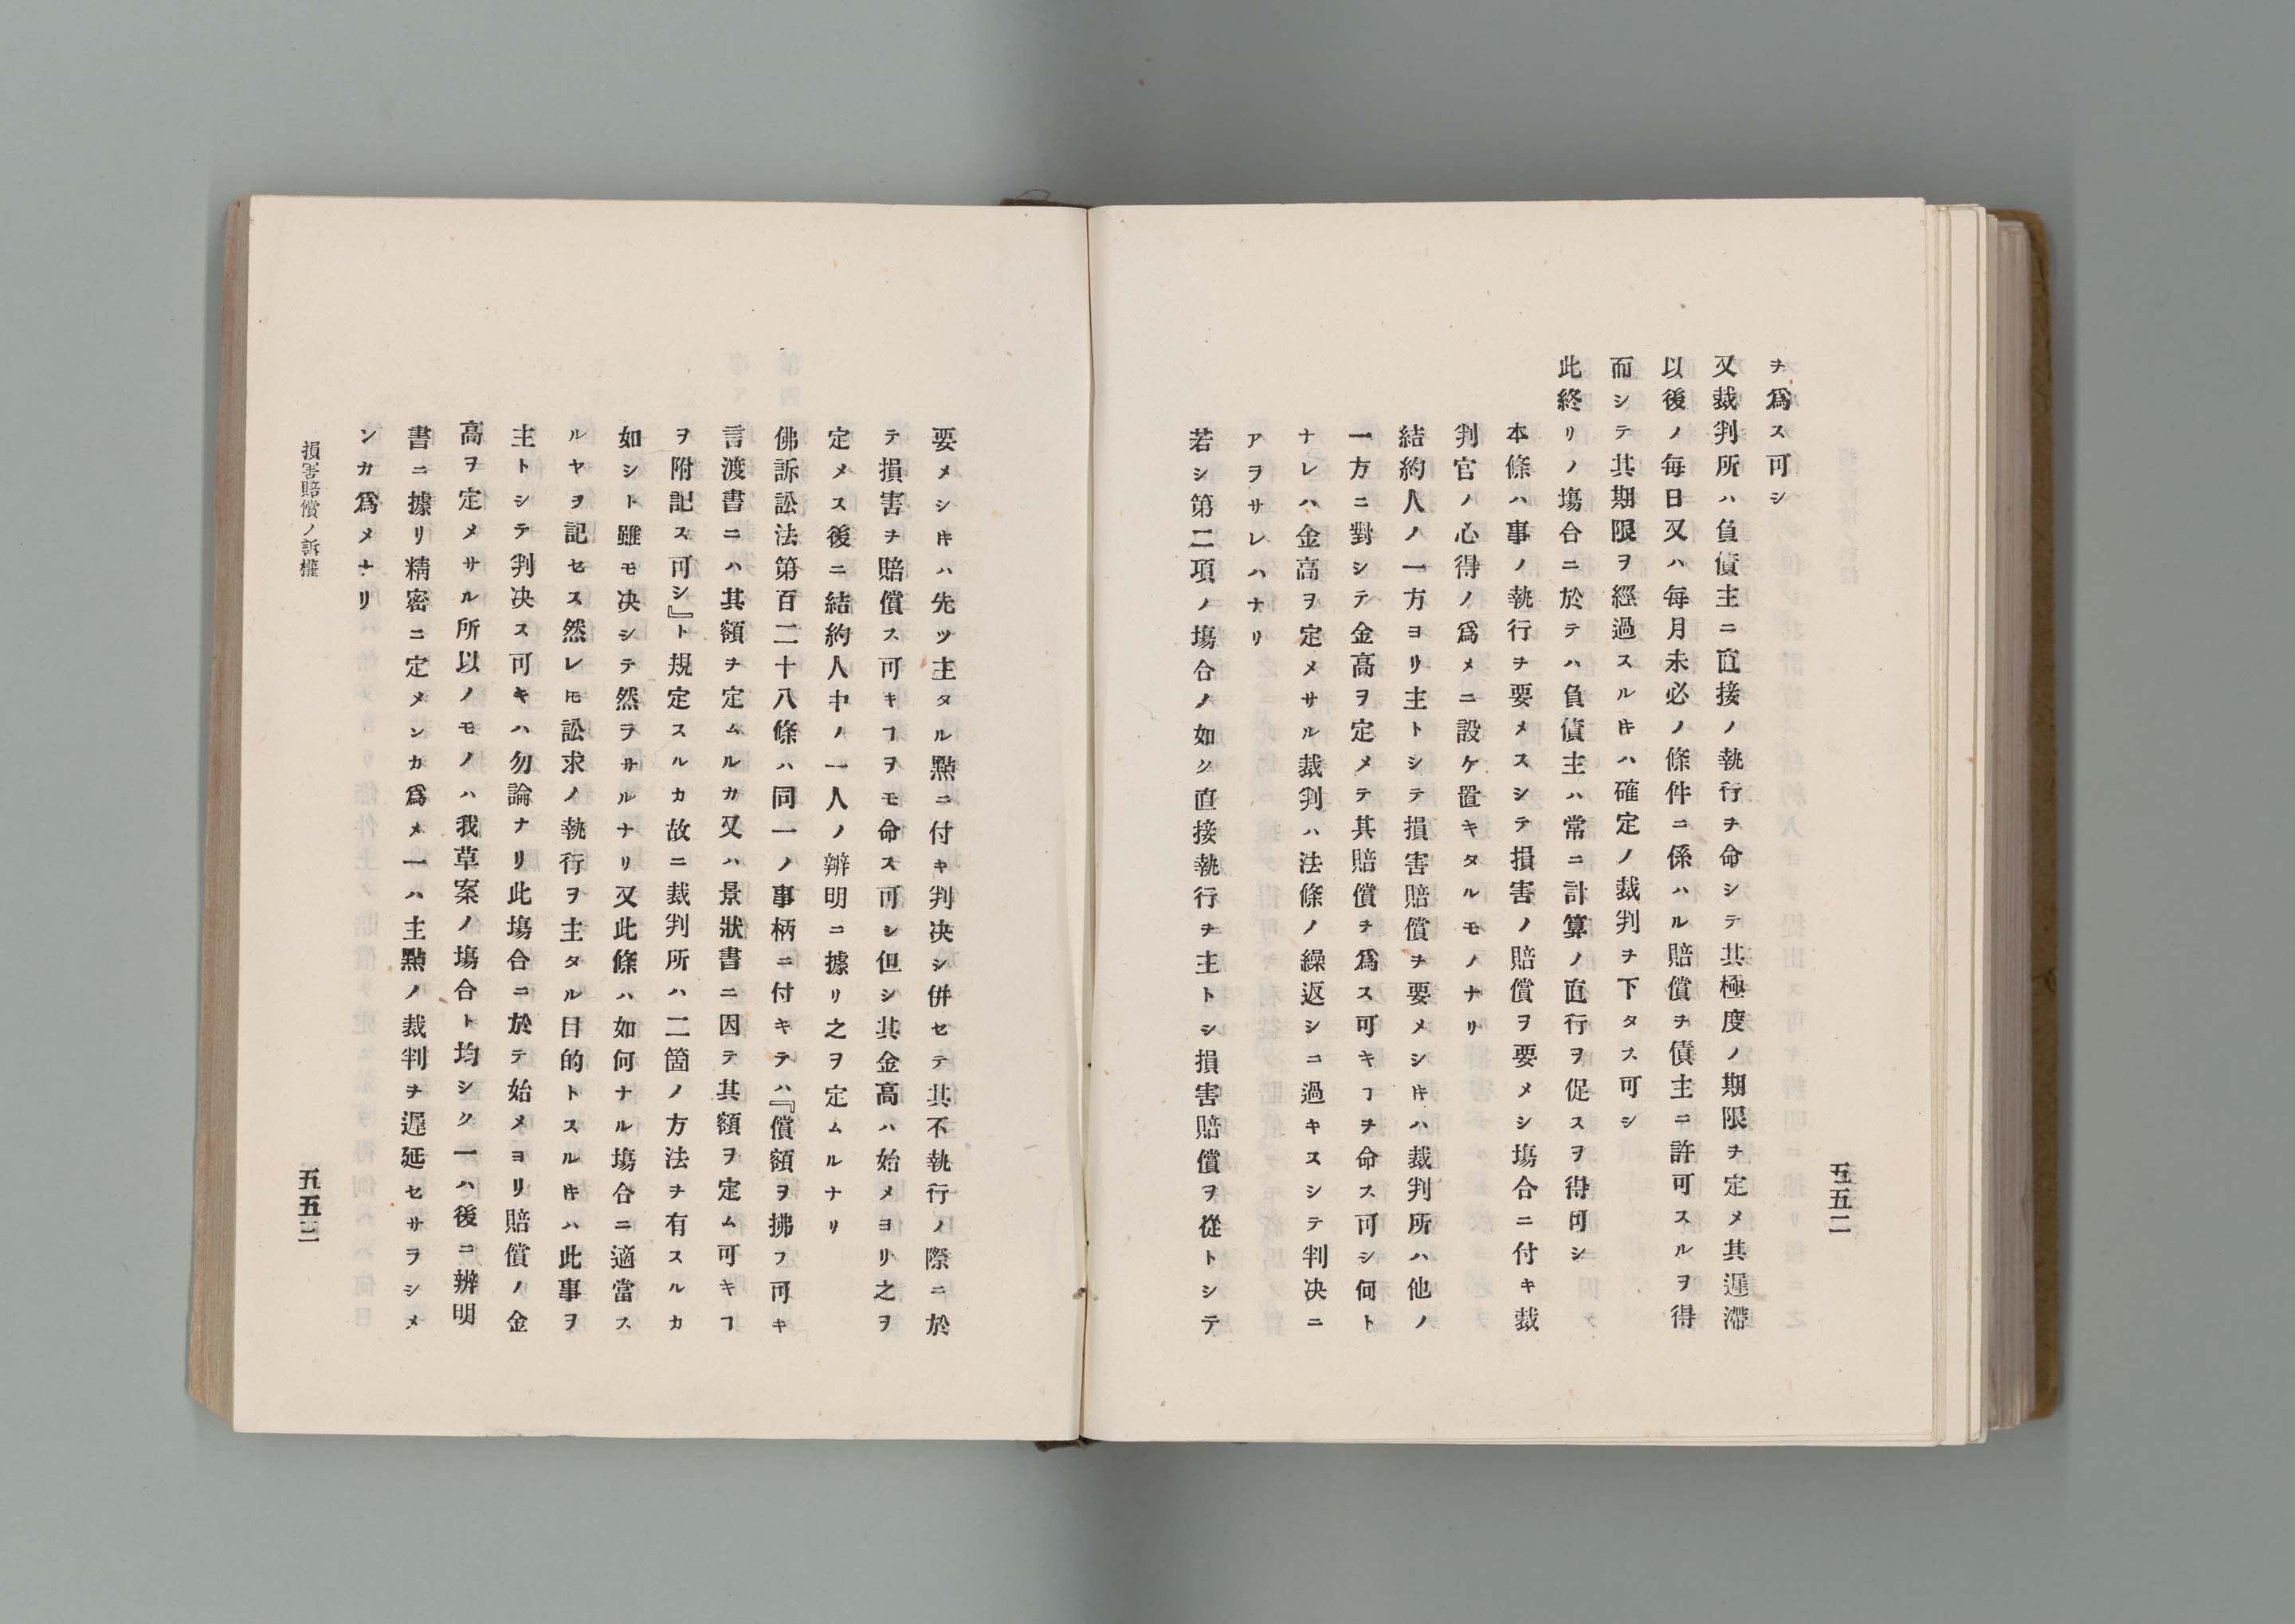 五五二
ヲ爲ス可シ
又裁判所ハ負債主ニ直接ノ執行ヲ命シテ其極度ノ期限ヲ定メ其遲滯
以後ノ毎日又ハ毎月未必ノ條件ニ係ハル賠償ヲ債主ニ許可スルヲ得
而シテ其期限ヲ經過スルᅝハ確定ノ裁判ヲ下タス可シ
此終リノ塲合ニ於テハ負債主ハ常ニ計算ノ直行ヲ促スヲ得可シ
本條ハ事ノ執行ヲ要メスシテ損害ノ賠償ヲ要メシ塲合ニ付キ裁
判官ノ心得ノ爲メニ設ケ置キタルモノナリ
結約人ノ一方ヨリ主トシテ損害賠償ヲ要メシ𪜈ハ裁判所ハ他ノ
一方ニ對シテ金高ヲ定メテ其賠償ヲ爲ス可キヿヲ命ス可シ何ト
ナレハ金高ヲ定メサル裁判ハ法條ノ繰返シニ過キスシテ判决ニ
アラサレハナリ
若シ第二項ノ塲合ノ如ク直接執行ヲ主トシ損害賠償ヲ從トシテ
要メシ𪜈ハ先ツ主タル點ニ付キ判决シ併セテ其不執行ノ際ニ於
テ損害ヲ賠償ス可キヿヲモ命ス可シ但シ其金高ハ始メヨリ之ヲ
定メス後ニ結約人中ノ一人ノ辨明ニ據リ之ヲ定ムルナリ
佛訴訟法第百二十八條ハ同一ノ事柄ニ付キテハ『償額ヲ拂フ可キ
言渡書ニハ其額ヲ定ムルカ又ハ景狀書ニ因テ其額ヲ定ム可キヿ
ヲ附記ス可シ』ト規定スルカ故ニ裁判所ハ二箇ノ方法ヲ有スルカ
如シト雖モ决シテ然ラサルナリ又此條ハ如何ナル塲合ニ適當ス
ルヤヲ記セス然レ𪜈訟求ノ執行ヲ主タル目的トスル𪜈ハ此事ヲ
主トシテ判决ス可キハ勿論ナリ此塲合ニ於テ始メヨリ賠償ノ金
高ヲ定メサル所以ノモノハ我草案ノ塲合ト均シク一ハ後ニ辨明
書ニ據リ精密ニ定メンカ爲メ一ハ主點ノ裁判ヲ遲延セサラシメ
ンカ爲メナリ
損害賠償ノ訴權
五五三